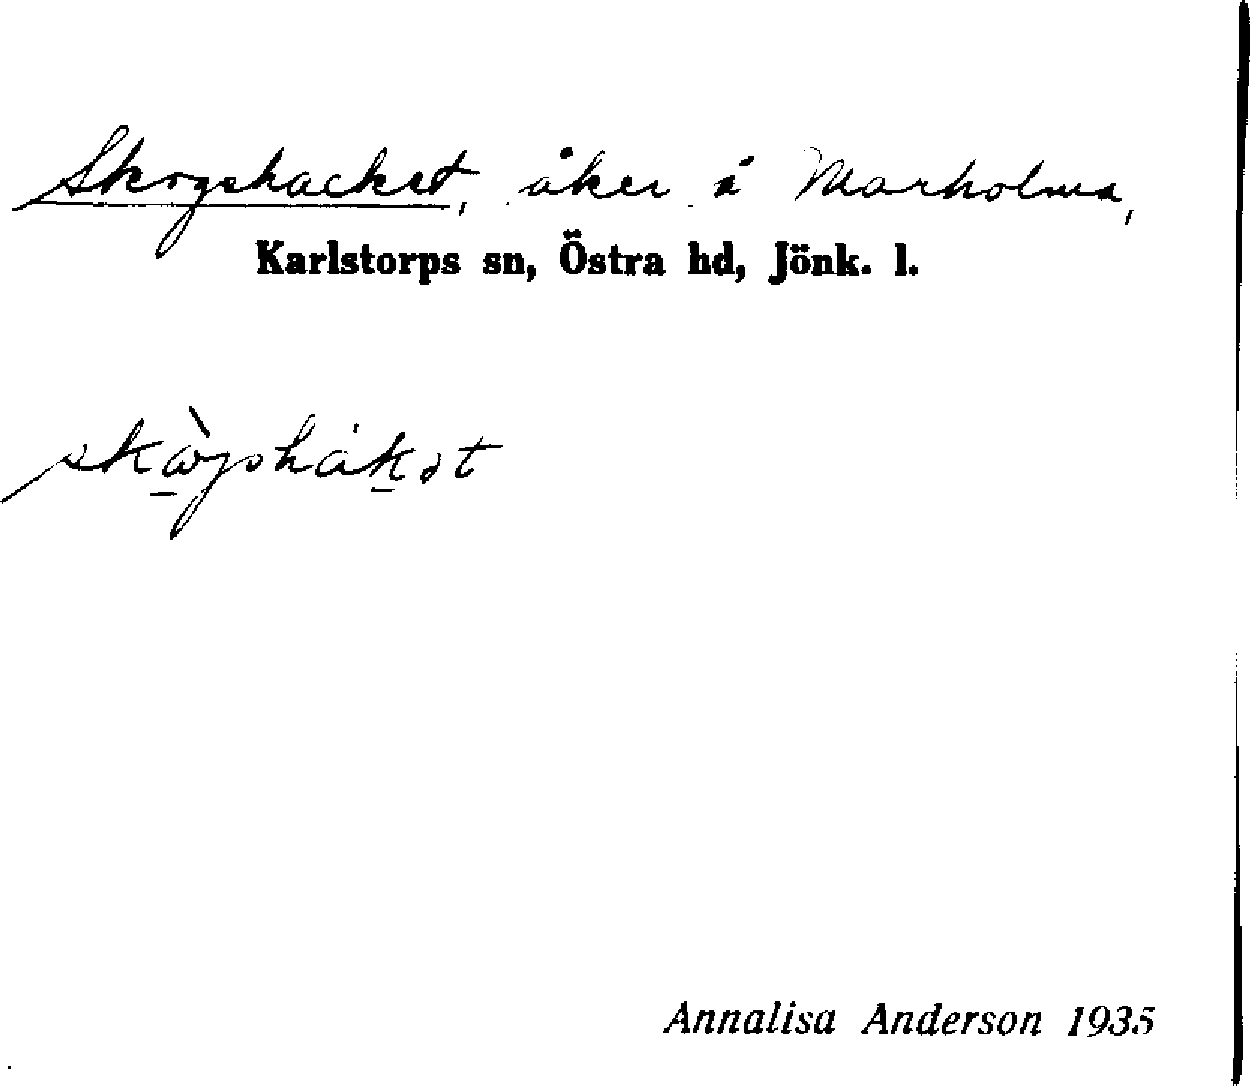 Skogshacket, åker å Marholma,
Karlstorps sn, Östra hd, Jönk. l.
Annalisa Anderson 1935